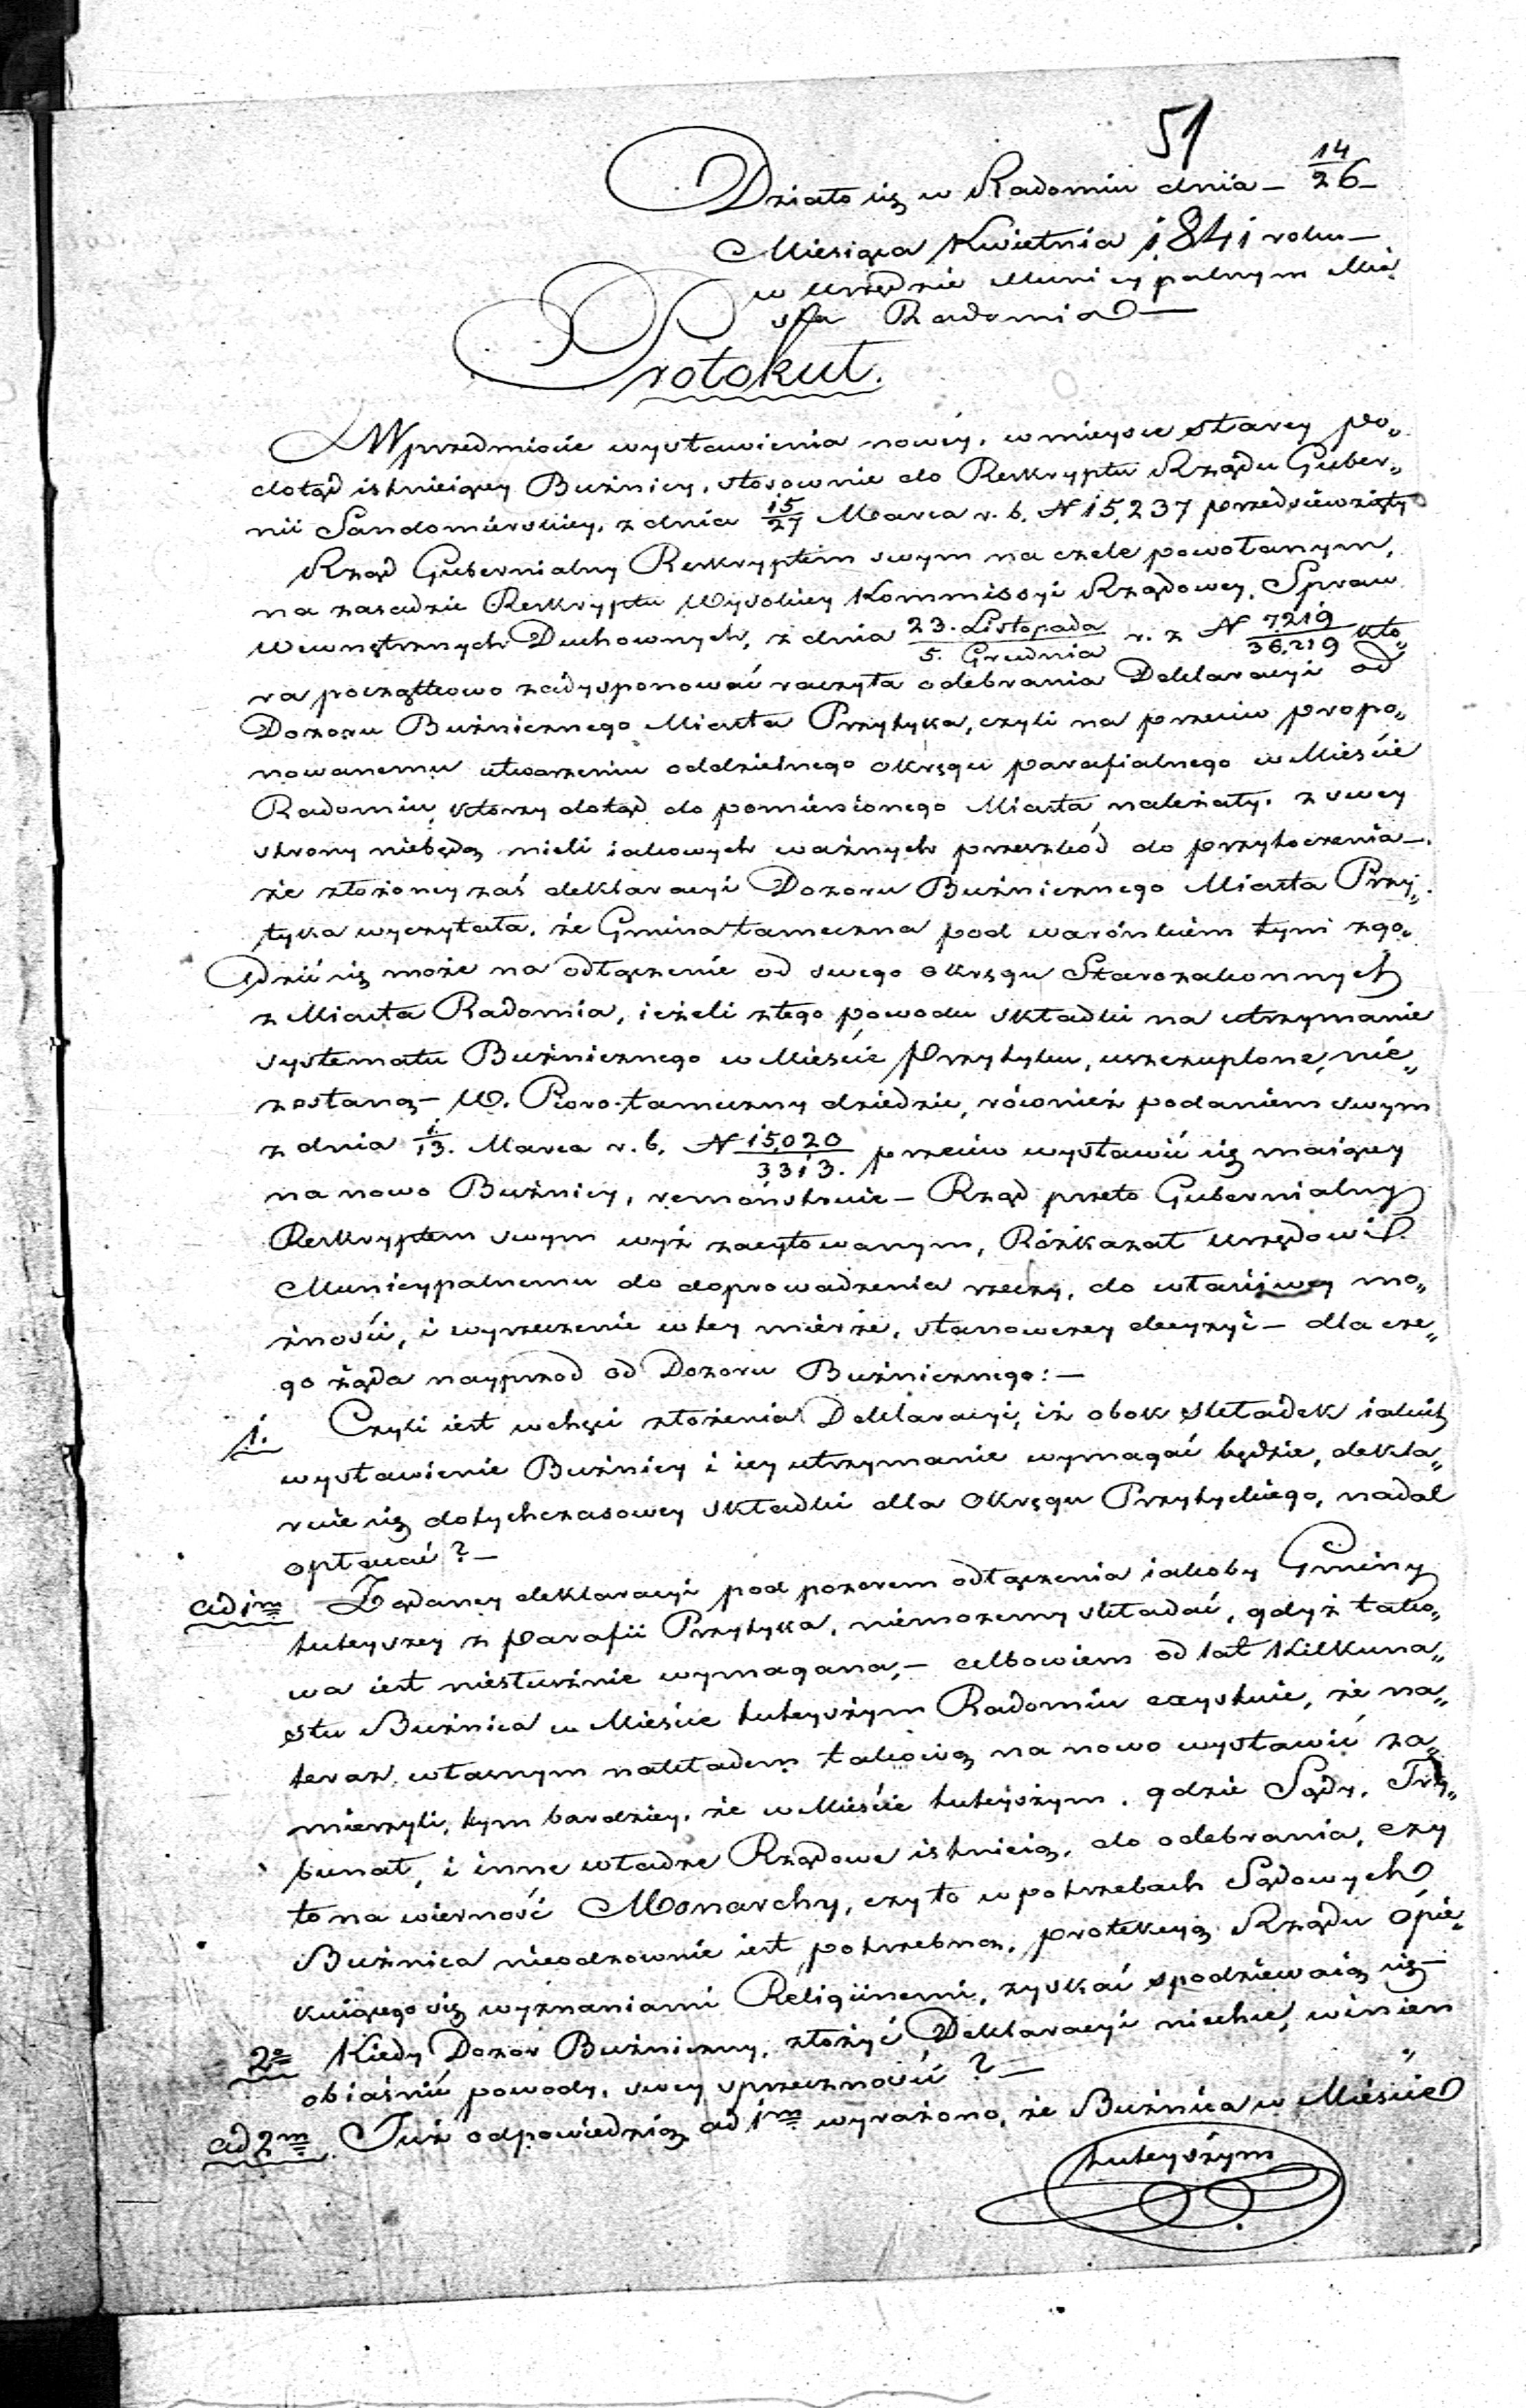 51
Działo się w Radomiu dnia – 14/26 –
Miesiąca Kwietnia 1841 roku –
w Urzędzie Municypalnym Mia„
sta Radomia –
Protokuł.
W przedmiocie wystawienia nowéy, w mieysce starey po„
dotąd istnieiącey Bużnicy, stosownie do Reskryptu Rządu Guber„
nii Sandomierskiey, z dnia 15/27 Marca r. b. N 15,237 przedsięwzięty
Rząd Gubernialny Reskryptem swym na czele powołanym,
na zasadzie Reskryptu Wysokiey Kommissyi Rządowey, Spraw
Wewnętrznych Duchownych, z dnia 23. Listopada/5. Grudnia r. z N 7219/36,219 któ„
ra początkowo zadysponować raczyła odebrania Deklaracyi od
Dozoru Bużnicznego Miasta Przytyka, czyli na przeciw propo„
nowanemu utworzeniu oddzielnego okręgu parafialnego w Mieście
Radomiu, którzy dotąd do pomienionego Miasta należały, z swey
strony niebędą mieli iakowych ważnych przeszkód do przytoczenia –.
że złożoney zaś deklaracyi Dozoru Bużnicznego Miasta Przy„
tyka wyczytała, że Gmina tameczna pod warónkiem tym zgo„
dzić się może na odłączenie od swego okręgu Starozakonnych
z Miasta Radomia, ieżeli z tego powodu składki na utrzymanie
systematu Bużnicznego w Mieście Przytyku, uszczuplone, nie„
zostaną – W. tameczny dziedzic, również podaniem swym
z dnia 1/13. Marca r. b. N 15,020/3313. przeciw wystawić się maiącey
na nowo Bużnicy, remónstruie – Rząd przeto Gubernialny
Reskryptem swym wyż zacytowanym, Rózkazał Urzędowi
Municypalnemu do doprowadzenia rzeczy, do właściwey mo„
żności, i wyrzeczenie w tey mierze, stanowczey decyzyi – dla cze„
go żąda nayprzod od Dozoru Bużnicznego: –
1. Czyli iest w chęci złożenia Deklaracyi, iż obok składek iakich
wystawienie Bużnicy i iey utrzymanie wymagać będzie, dekla„
ruie się dotychczasowey składki dla Okręgu Przytyckiego, nadal
opłacać? –
ad 1m Żądaney deklaracyi pod pozorem odłączenia iakoby Gminy
tuteyszey z parafii Przytyka, niemożemy składać, gdyż tako„
wa iest niesłusznie wymagana, – albowiem od lat kilkuna„
stu Bużnica w Mieście tuteyszym Radomiu exystuie, że na„
teraz, własnym nakładem takową na nowo wystawić za„
mierzyli, tym bardziey, że w Mieście tuteyszym, gdzie Sądy, Try„
bunał, i inne władze Rządowe istnieią, do odebrania, czy
to na wierność Monarchy, czy to w potrzebach Sądowych
Bużnica nieodzownie iest potrzebną, protekcyą Rządu opie„
kuiącego się wyznaniami Religiinemi, zyskać spodziewaią się –
2o Kiedy Dozór Bużniczny, złożyć Deklaracyi niechce, winien
obiaśnić powody, swey sprzeczności? –
ad 2m. Już odpowiedzią ad 1m wyrażono, że Bużnica w Mieście
tuteyszym